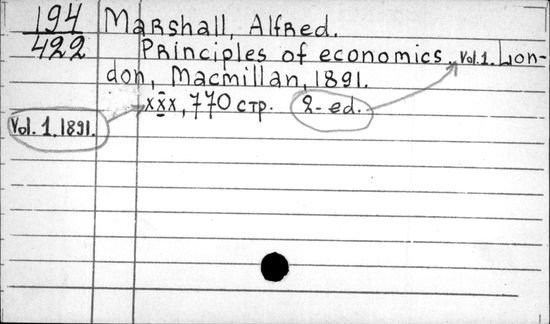 194 Marshall, Alfred.
422 Principles of economics, Vol. 1. Lon-
don, Macmillan, 1891.
xxx, 770 стр. 2-ed.
Vol. 1, 1891.